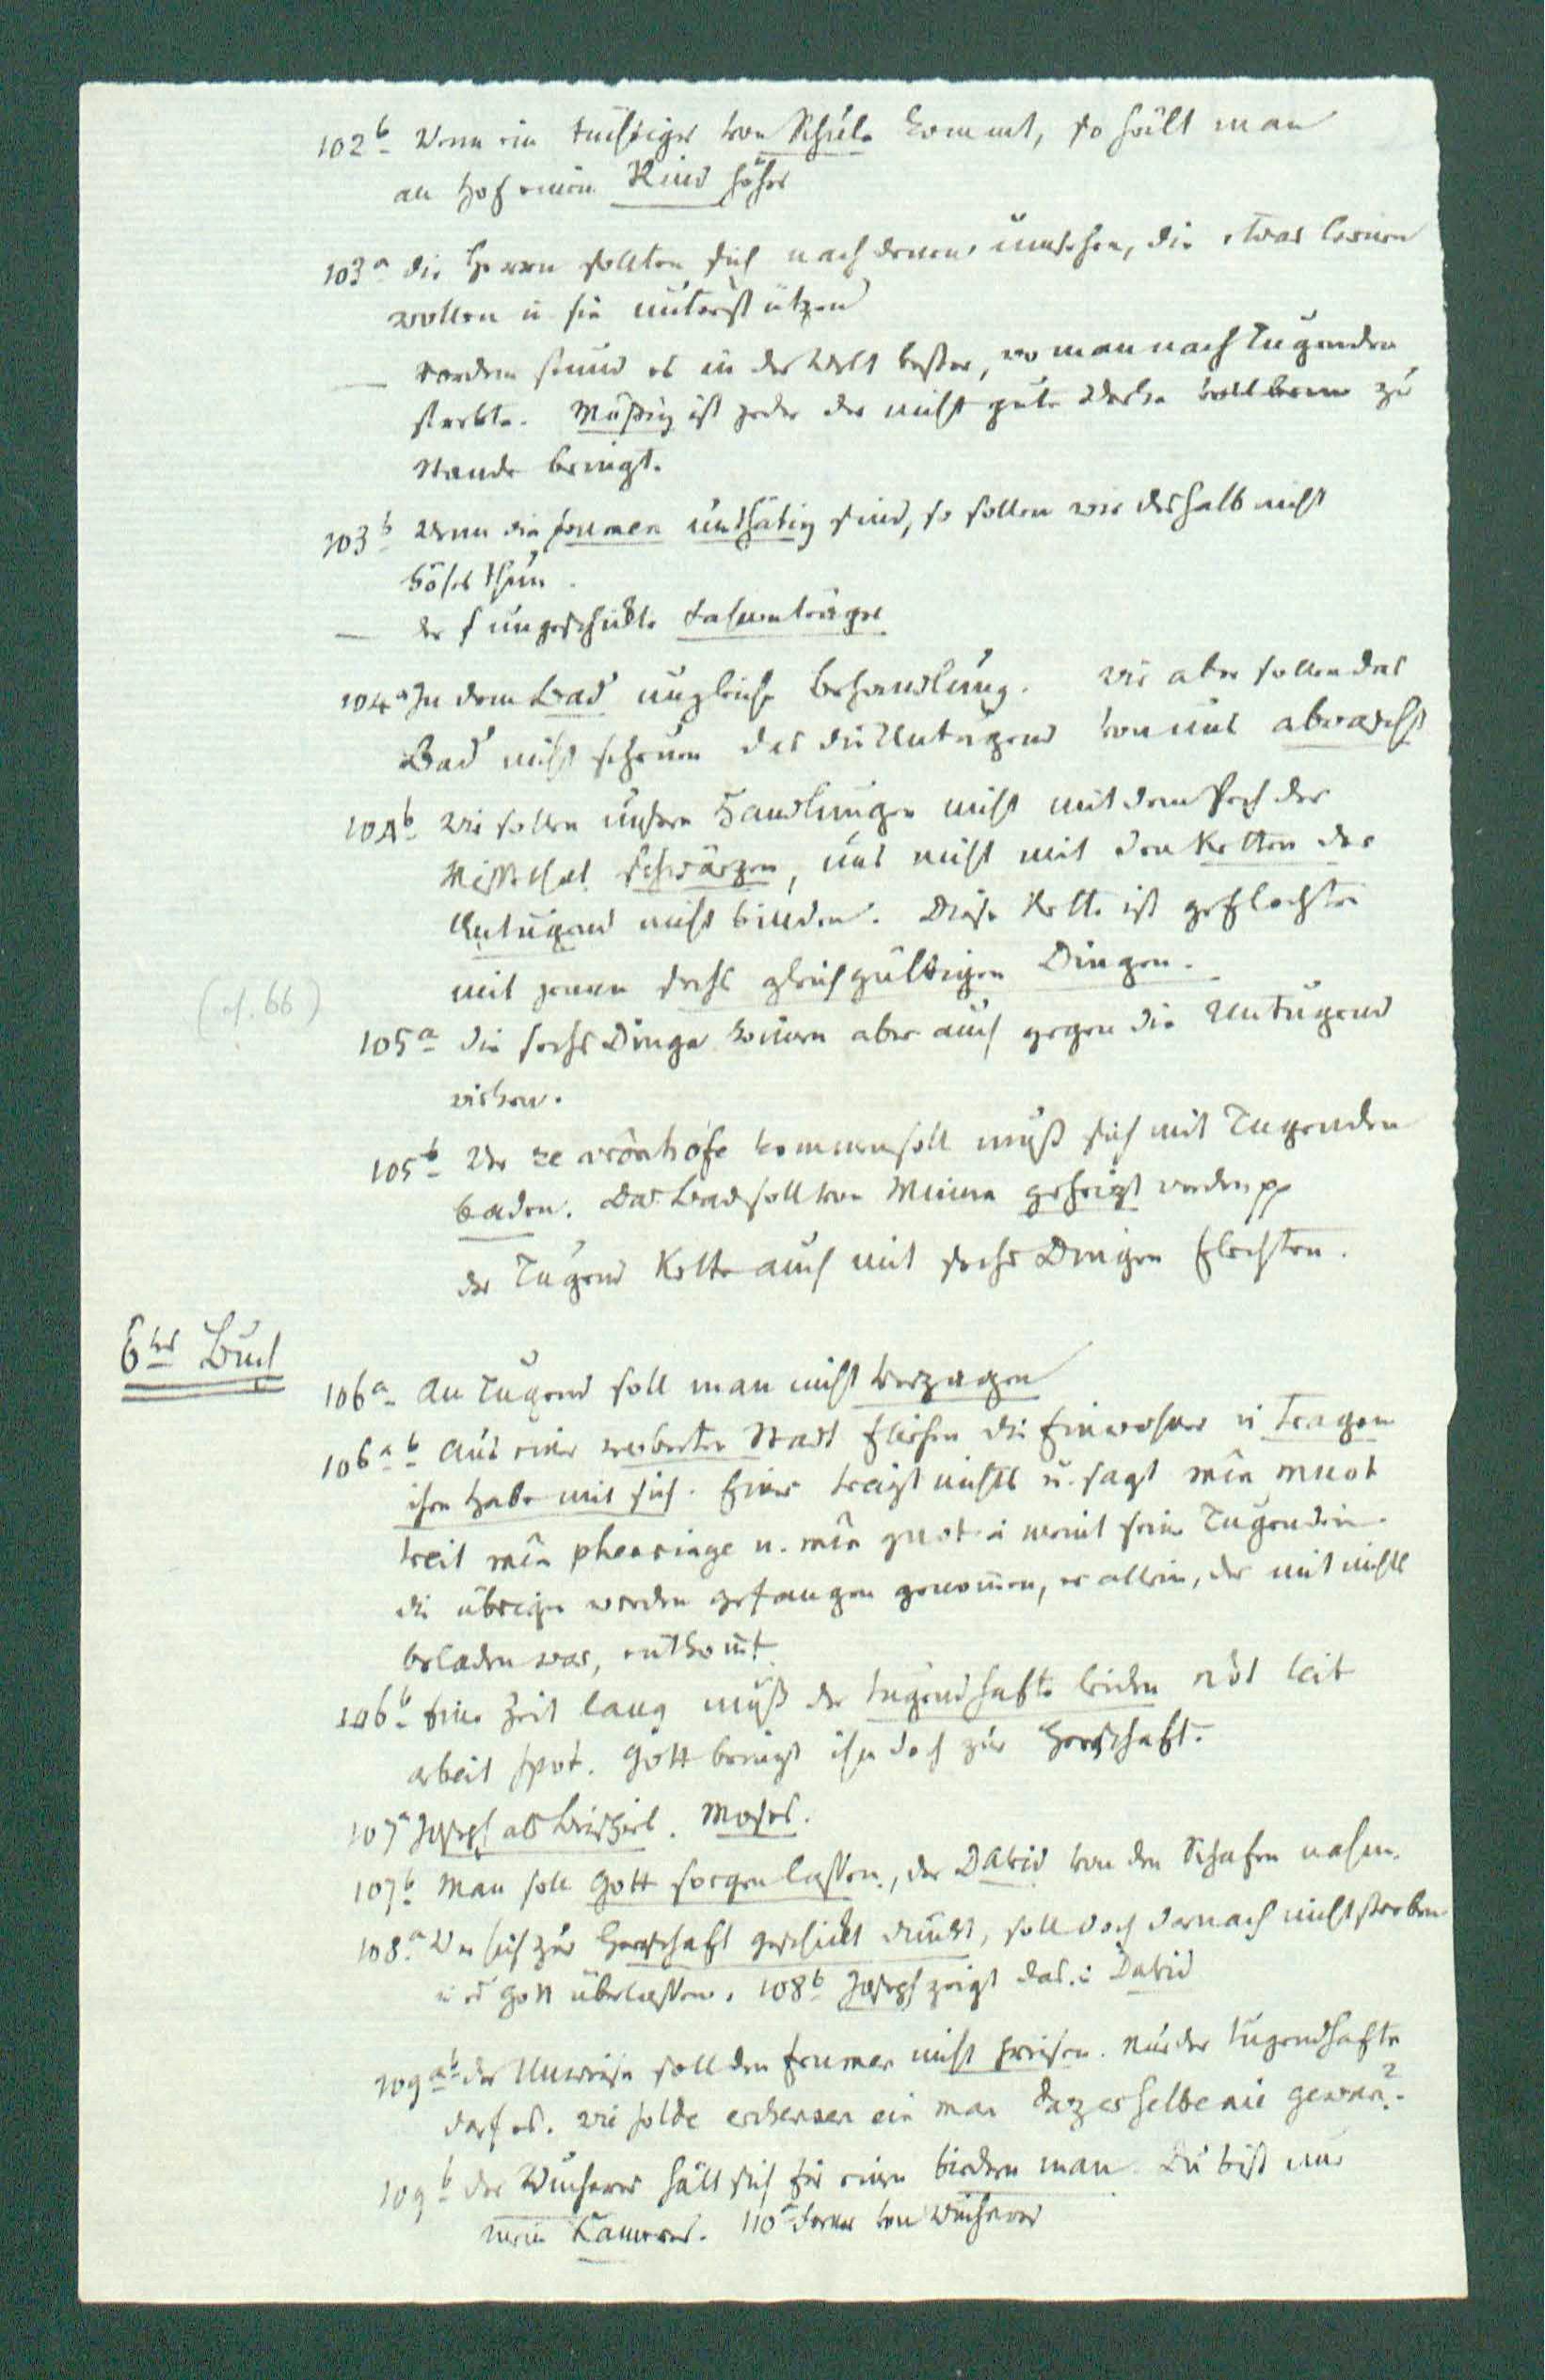 102b Wenn ein tüchtiger von Schule kommt, so hält man
an Hof einen Rind höher
103a die Herrn sollten sich nach denen umsehen, die etwas lernen
wollen u. sie unterstützen
— vordem stund es in der Welt besser, wo man nach Tugenden
strebte. Müßig ist jeder der nicht gute Werke vollbrin zu
Stande bringt.
103b Wenn die frumen unthätig sind, so sollen wir deshalb nicht
böses thun.
— der ungeschickte
104a In dem Bad ungleiche Behandlung. Wir aber sollen das
Bad nicht scheuen das die Untugend von uns abwascht
104b Wir sollen unsere Handlungen nicht mit dem Pech der
Missethat schwärzen, uns nicht mit den Ketten der
Untugend nicht binden. Diese Kette ist geflochten
mit jenen sechs gleichgültigen Dingen.
(cf. 66)
105a die sechs Dinge können aber auch gegen die Untugend
wirken.
105b Wer ze vrônhofe kommen soll muß sich mit Tugenden
baden. Das Bad soll von Minne geheizt werden pp
der Tugend Kette auch mit sechs Dingen flechten.
6tes Buch
106a An Tugend soll man nicht verzagen
106a b Aus einer Stadt fliehen die Einwohner u. tragen
ihre Habe mit sich. Einer trägt nichts u. sagt mîn muot
treit mîn phenninge u. mîn guot u. meint seine Tugenden.
die übrigen werden gefangen genommen, er allein, der mit nichts
beladen war, entkomt.
106b Eine Zeit lang muß der tugendhafte leiden nôt leit
arbeit spot. Gott bringt ihn doch zur Herrschaft.
107a Joseph als Beispiel. Moses.
107b Man soll Gott sorgen lassen, der David von den Schafen nahm.
108a Wer sich zur Herrschaft geschickt dünkt, soll doch darnach nicht streben
u. es Gott überlassen. 108b Joseph zeigt das u. David
109ab der Unweise soll den frumen nicht preisen. Nur der Tugendhafte
darf es. wie solde erchennen ein man daz er selbe nie gewan?
109b der Wucherer hält sich für einen biedern man. Du bist nur
mein Kamerad. 110a ferner von Wucherer